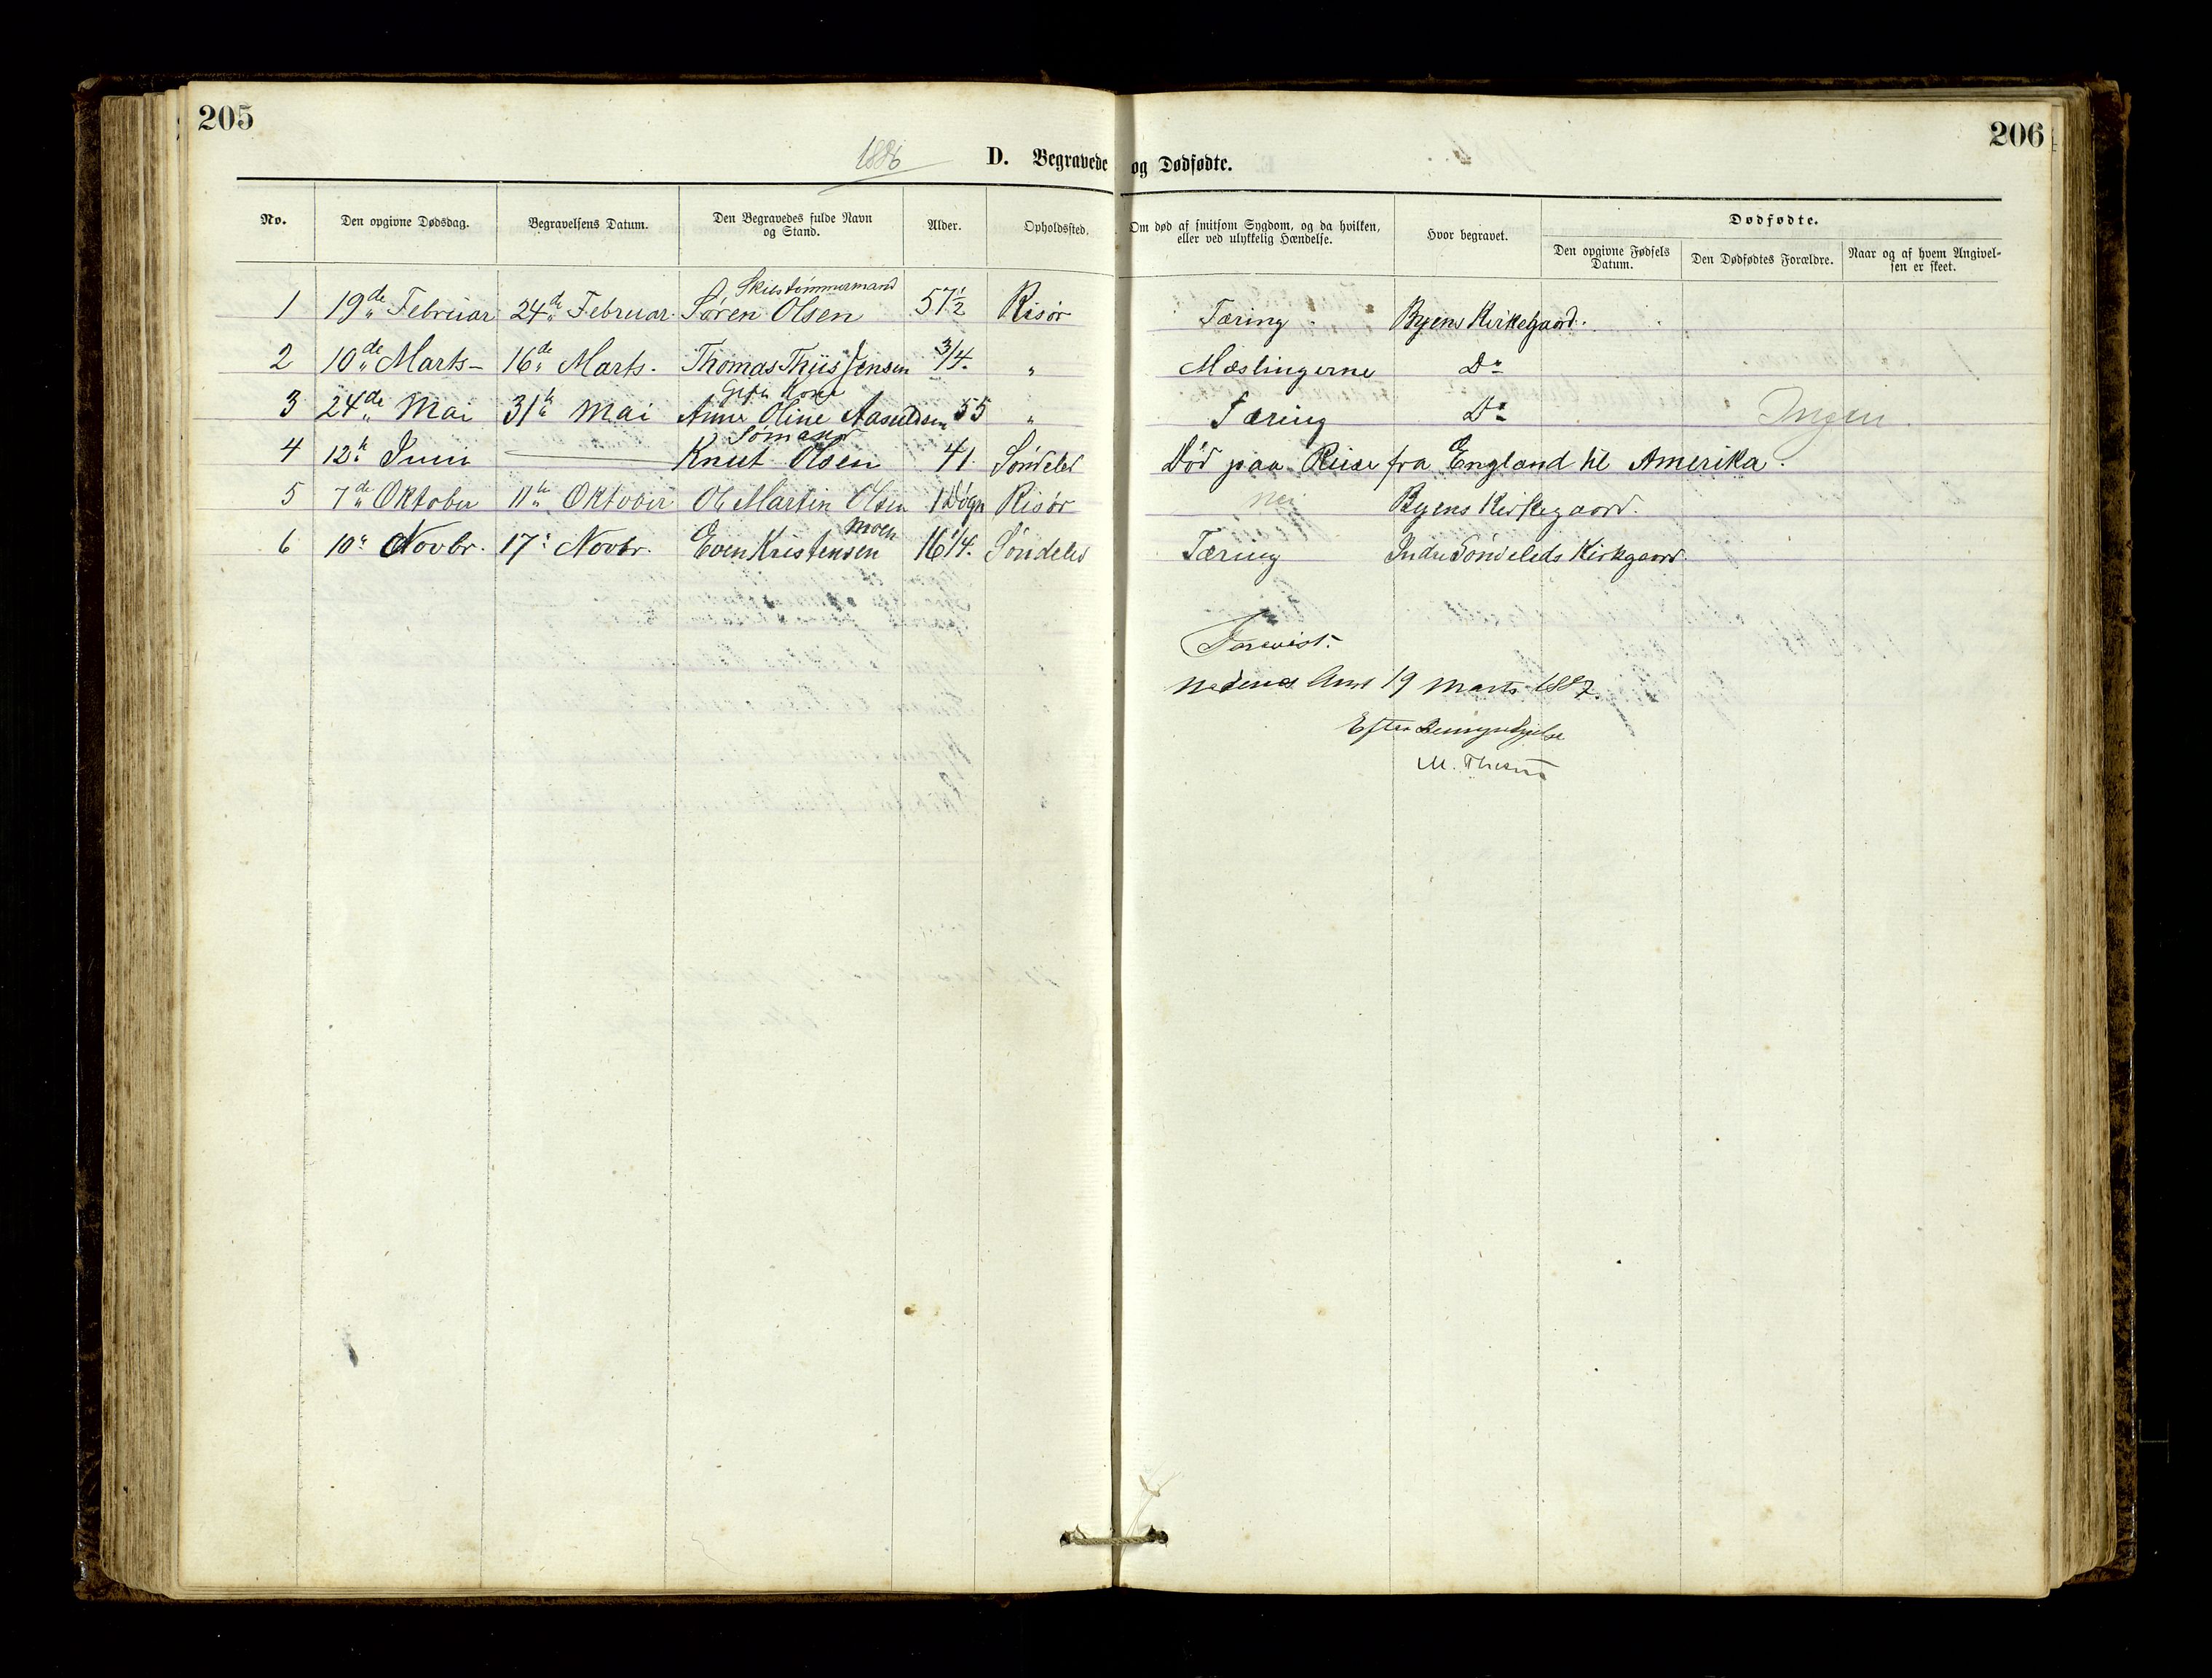 205
206
1886
D. Begravede og Dødfødte.
No. Den opgivne Dødsdag. Begravelsens Datum. Den Begravedes fulde Navn og Stand. Alder. Opholdssted. Om død af smitsom Sygdom, og da hvilken, eller ved ulykkelig Hændelse. Hvor begravet. Dødfødte.
Den opgivne Fødsels Datum. Den Dødfødtes Forældre. Naar og af hvem Angivelsen er skeet.
Skibstømmermand
1 19de Februar 24de Februar. Søren Olsen 57½ Risør Tæring. Byens Kirkegaard.
2 10de Marts – 16de Marts. Thomas Thiis Jensen 3/4. " Mæslingerne Do
Gift Kone
3 24de Mai 31te Mai Anne Oline Aasuldsen 55 " Tæring Do Ingen.
Sømand
4 12te Juni — Knut Olsen 41 Søndeled Død paa Reise fra England til Amerika.
5 7de Oktober 11te Oktober Ole Martin Olsen 1 Døgn Risør nei Byens Kirkegaard.
Moen
6 10de Novbr. 17de Novbr. Even Kristensen 16 1/4. Søndeled Tæring Indre Søndeleds Kirkegaard.
Forevist.
Nedenes Amt 19 Marts 1887.
Efter Bemyndigelse
M.